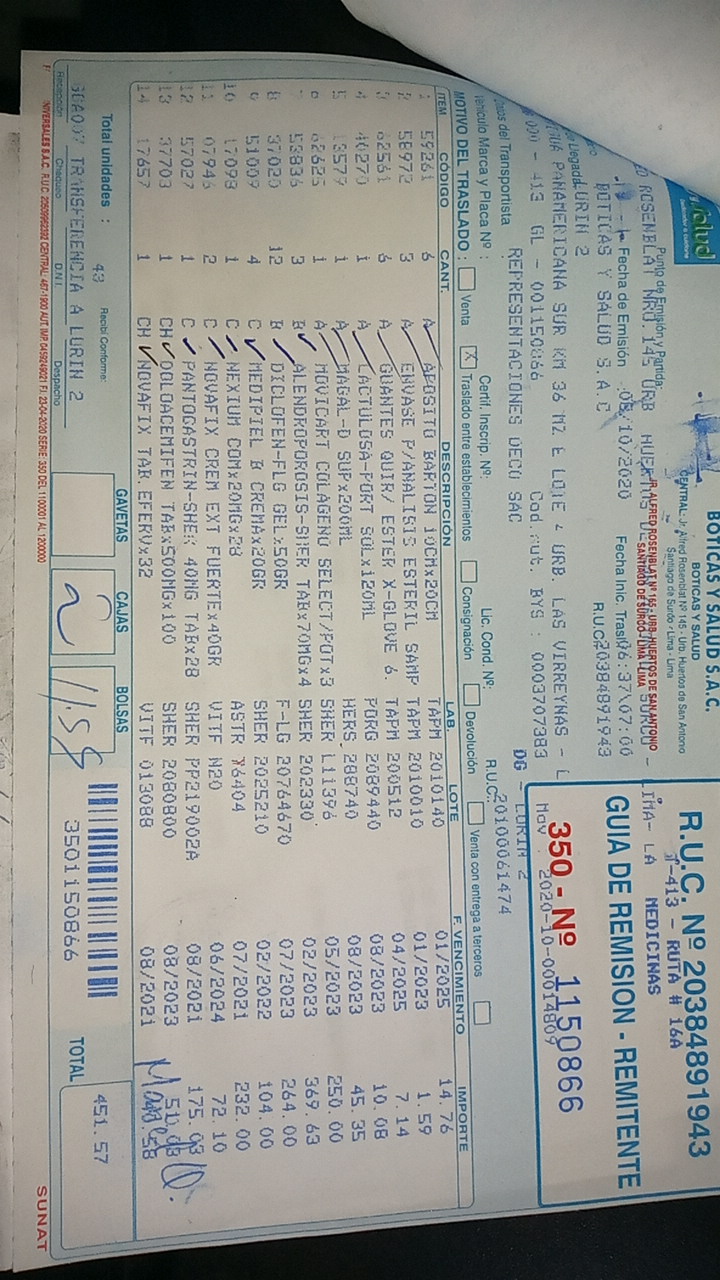 BOTICAS Y SALUD S.A.C.
BOTICAS Y SALUD
CENTRAL: Jr. Alfred Rosenblat Nº 145 - Urb. Huertos de San Antonio
Santiago de Surco - Lima - Lima
JR. ALFRED ROSENBLAT Nº 165, URB. HUERTOS DE SAN ANTONIO
SANTIAGO DE SURCO - LIMA - LIMA
R.U.C. Nº 20384891943
GUIA DE REMISION - REMITENTE
350 - Nº 1150866
Mov. 2020-10-00014809
T-413 - RUTA # 16A
LIMA- LA MEDICINAS
Punto de Emisión y Partida:
ROSENBLAT NRO.145 URB HUERTOS
Fecha de Emisión : 08/10/2020 Fecha Inic. Trasl. 06:37\07:00
BOTICAS Y SALUD S.A.C R.U.C. 20384891943
LURIN 2
PANAMERICANA SUR KM 36 MZ E LOTE 4 URB. LAS VIRREYNAS - L
DG - LURIN 2
413 GL - 001150866 Cod.rut. BYS : 0003707383
REPRESENTACIONES DECO SAC R.U.C.: 20100061474
Vehículo Marca y Placa Nº : Certif. Inscrip. Nº: Lic. Cond. Nº:
MOTIVO DEL TRASLADO : Venta X Traslado entre establecimientos Consignación Devolución Venta con entrega a terceros
ITEM CÓDIGO CANT. DESCRIPCIÓN LAB. LOTE F. VENCIMIENTO IMPORTE
1 59261 6 A APOSITO BARTON 10CMx20CM TAPM 2010140 01/2025 14.76
2 58972 3 A ENVASE P/ANALISIS ESTERIL SAMP TAPM 2010010 01/2023 1.59
3 62561 6 A GUANTES QUIR/ ESTER X-GLOVE 6. TAPM 200512 04/2025 7.14
4 40270 1 A LACTULOSA-PORT SOLx120ML PORG 2089440 08/2023 10.08
5 13579 1 A MAGAL-D SUPx200ML HERS 288740 08/2023 45.35
6 62625 1 A MOVICART COLAGENO SELECT/POTx3 SHER L11396 05/2023 250.00
7 53836 3 B ALENDROPOROSIS-SHER TABx70MGx4 SHER 202330 02/2023 369.63
8 37020 12 B DICLOFEN-FLG GELx50GR F-LG 20764670 07/2023 264.00
9 51009 4 C MEDIPIEL B CREMAx20GR SHER 2025210 02/2022 104.00
10 17098 1 C NEXIUM COMx20MGx28 ASTR Y6404 07/2021 232.00
11 07946 2 C NOVAFIX CREM EXT FUERTEx40GR VITF N20 06/2024 72.10
12 57027 1 C PANTOGASTRIN-SHER 40MG TABx28 SHER PP219002A 08/2021 175.03
13 37703 1 CH DOLOACEMIFEN TABx500MGx100 SHER 2080800 08/2023 51.03
14 17657 1 CH NOVAFIX TAB EFERVx32 VITF 013088 08/2021
Total unidades : 43 Recibí Conforme:
TRANSFERENCIA A LURIN 2
Recepción Chequeo D.N.I. Despacho
GAVETAS CAJAS BOLSAS
2 11.58
3501150866
TOTAL 451.57
UNIVERSALES S.A.C. CENTRAL: 467-1900 F.I. 23-04-2020 SERIE: 350 DEL 1100001 AL 1200000
SUNAT